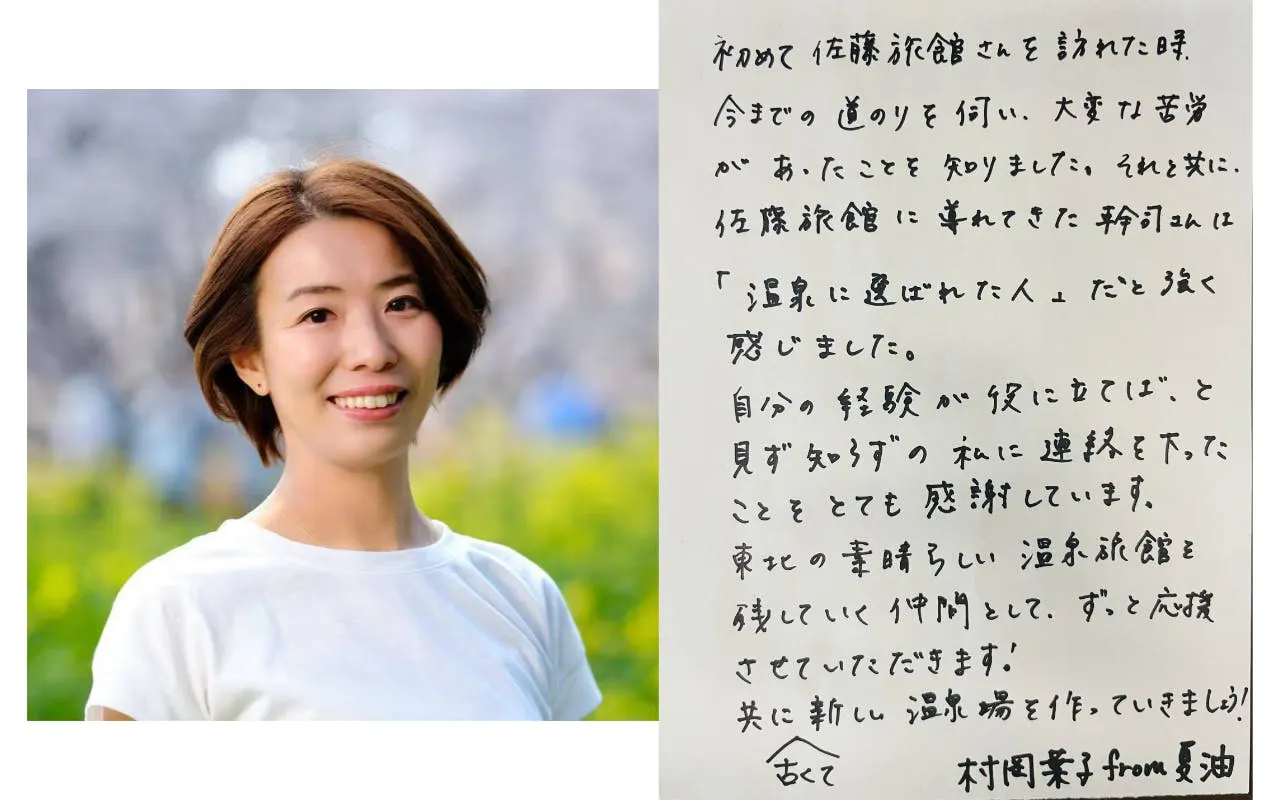 初めて 佐藤旅館さんを訪れた時、
今までの道のりを伺い、大変な苦労
があったことを知りました。それと共に、
佐藤旅館に導れてきた幹司さんは
「温泉に選ばれた人」だと強く
感じました。
自分の経験が役に立てば、と
見ず知らずの私に連絡を下った
ことをとても感謝しています。
東北の素晴らしい温泉旅館を
残していく仲間として、ずっと応援
させていただきます!
共に新しい温泉場を作っていきましょう!
古くて
村岡葉子from夏油